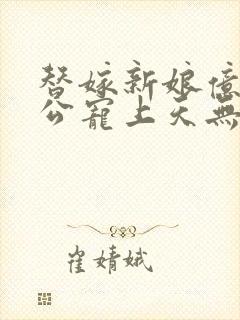 替嫁新娘億
公寵上天無
崔婧娥